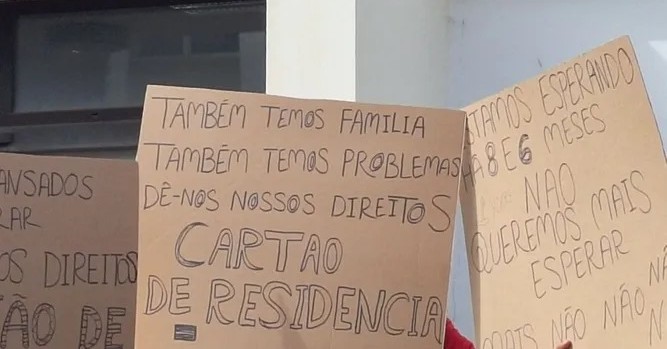 ANSADOS
RAR
OS DIREITOS
ÃO DE
TAMBÉM TEMOS FAMILIA
TAMBÉM TEMOS PROBLEMAS
DÊ-NOS NOSSOS DIREITOS
CARTAO
DE RESIDENCIA
STAMOS ESPERANDO
HÁ 8 E 6 MESES
NAO
QUEREMOS MAIS
ESPERAR
MAIS NÃO NÃO NÃ